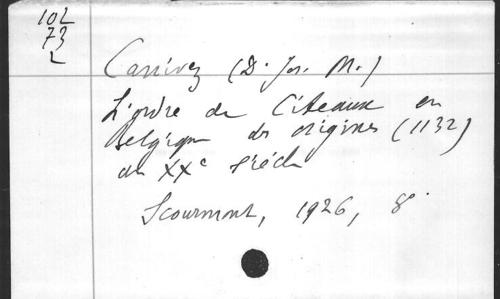 102
73
L
Canivez (D. Jos. M.)
L'ordre de Citeaux en
Belgique des origines (1132)
au XXe siècle
Scourmont, 1926, 8°